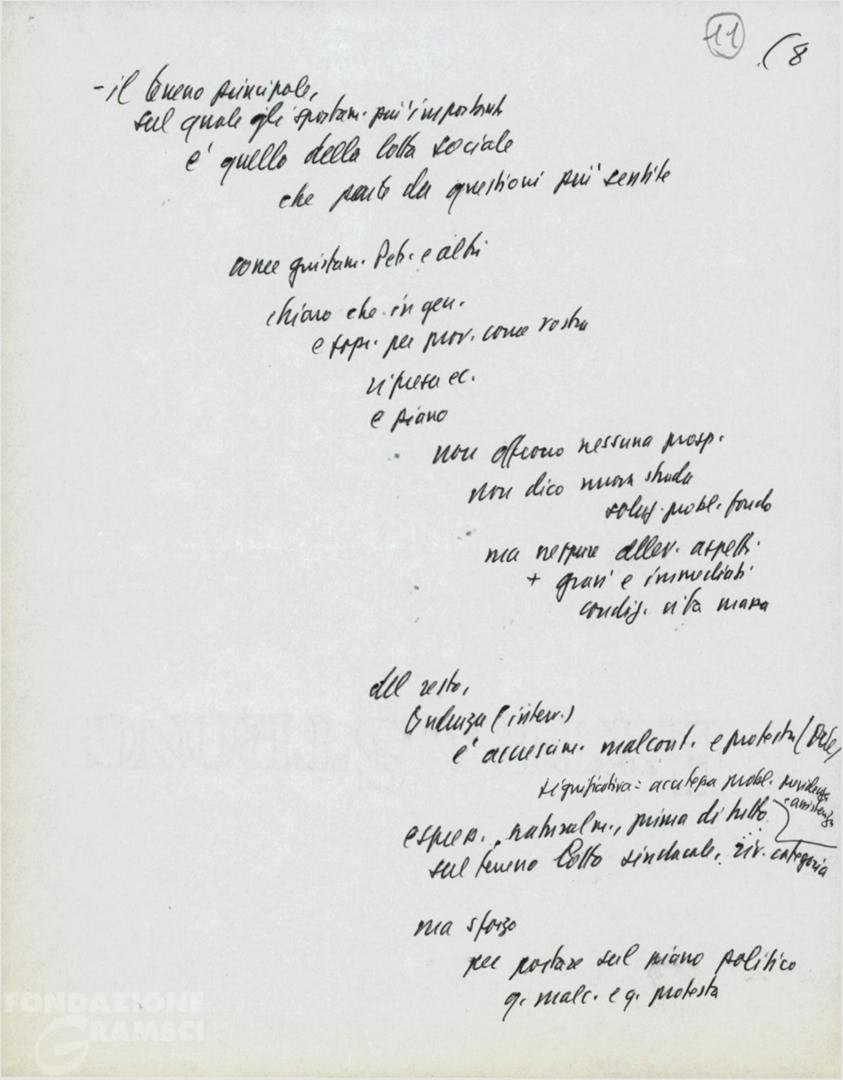 11 (8
- il terreno principale,
sul quale gli spostam. più importanti
è quello della lotta sociale
che parte da questioni più sentite
come giustam. Petr. e altri
chiaro che in gen.
e sopr. per prov. come vostra
ripresa ec.
e piano
non offrono nessuna prosp.
non dico nuova strada
soluz. probl. fondo
ma neppure allev. aspetti
+ gravi e immediati
condiz. vita massa
del resto,
tendenza (interr.)
è accrescim. malcont. e protesta
significativa = acutezza probl. previdenza
assistenza
espress. naturalm., prima di tutto
sul terreno lotta sindacale, riv. categoria
ma sforzo
per portare sul piano politico
q. malc. e q. protesta
FONDAZIONE
GRAMSCI